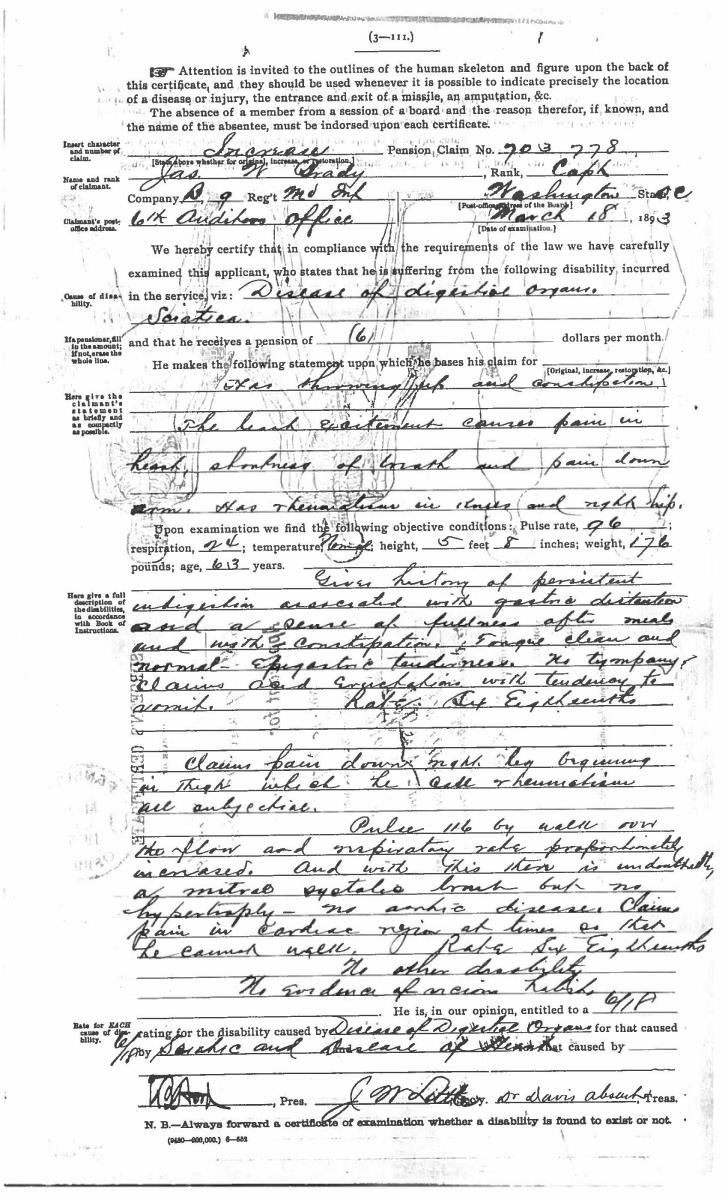 (3—111.)
☞ Attention is invited to the outlines of the human skeleton and figure upon the back of
this certificate, and they should be used whenever it is possible to indicate precisely the location
of a disease or injury, the entrance and exit of a missile, an amputation, &c.
The absence of a member from a session of a board and the reason therefor, if known, and
the name of the absentee, must be indorsed upon each certificate.
Insert character and number of claim.
Increase Pension Claim No. 703 778
[State above whether for original, increase, or restoration.]
Name and rank of claimant.
Jas. W Brady, Rank, Capt
Company D, 9 Reg't Md Inf Washington State, DC
[Post-office address of the Board.]
Claimant's post-office address.
6th Auditors Office March 18, 1893
[Date of examination.]
We hereby certify that in compliance with the requirements of the law we have carefully
examined this applicant, who states that he is suffering from the following disability, incurred
Cause of disability.
in the service, viz: Disease of digestive organs.
Sciatica.
If a pensioner, fill in the amount; if not, erase the whole line.
and that he receives a pension of (6) dollars per month.
He makes the following statement upon which he bases his claim for
[Original, increase, restoration, &c.]
Has throwing up and constipation
Here give the claimant's statement as briefly and as compactly as possible.
The least excitement causes pain in
heart, shortness of breath and pain down
arm. Has rheumatism in knees and right hip.
Upon examination we find the following objective conditions: Pulse rate, 96;
respiration, 24; temperature, Normal; height, 5 feet 8 inches; weight, 176
pounds; age, 63 years.
Here give a full description of the disabilities, in accordance with Book of Instructions.
Gives history of persistent
indigestion associated with gastric distention
and a sense of fullness after meals
and with constipation. Tongue clean and
normal - Epigastric tenderness. No tympany.
Claims acid eructations with tendency to
vomit. Rate: Six Eighteenths
Claims pain down right leg beginning
in thigh which he call rheumatism
all subjective.
Pulse 116 by walk over
the floor and respiratory rate proportionately
increased. And with this there is undoubtedly
a mitral systolic bruit but no
hypertrophy - no aortic disease. Claims
pain in cardiac region at times so that
he cannot walk. Rate Six Eighteenths
No other disability
No evidence of vicious habits
He is, in our opinion, entitled to a 6/18
Rate for EACH cause of disability.
rating for the disability caused by Disease of Digestive Organs for that caused
6/18 by Sciatic and Disease of Heart that caused by
, Pres. J W Little, Sec'y. Dr Davis absent, Treas.
N. B.—Always forward a certificate of examination whether a disability is found to exist or not.
(9480—200,000.) 6—552